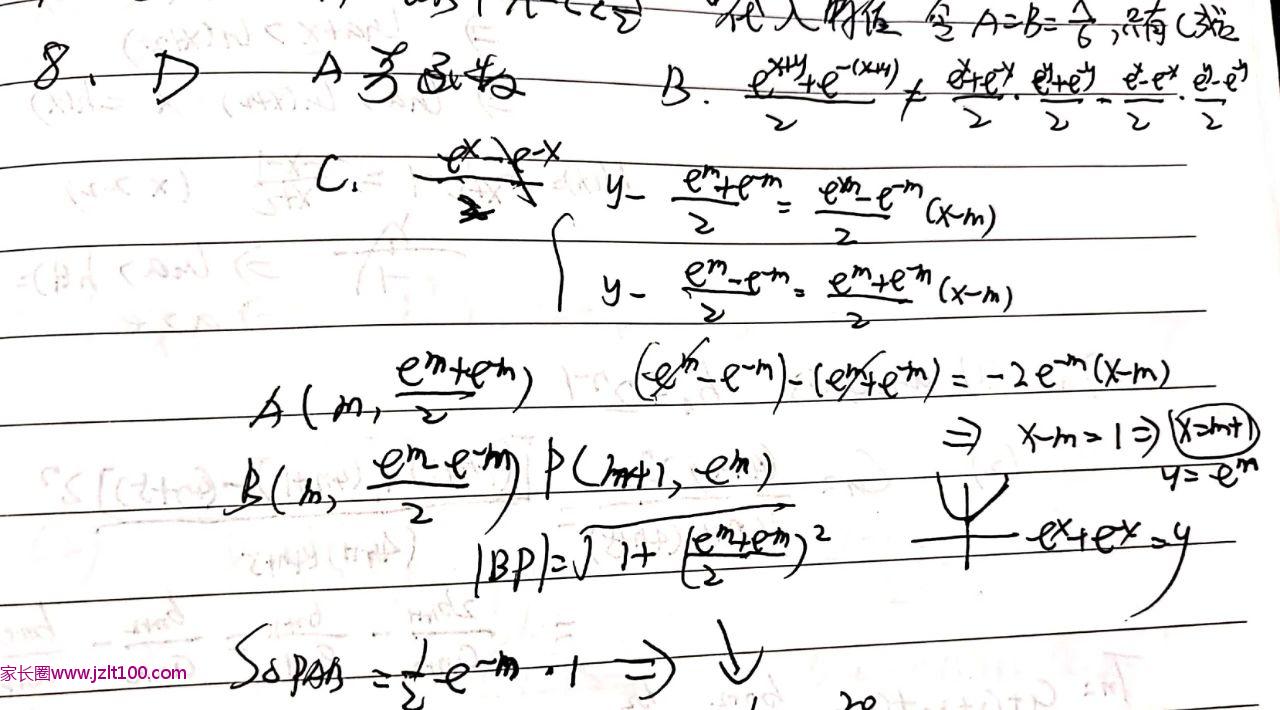 代入 A=B=π/6,
8. D A 为 B. (e^(x+y)+e^(-(x+y)))/2 ≠ (e^x+e^-y)/2 · (e^y+e^-y)/2 - (e^x-e^x)/2 · (e^y-e^-y)/2
C. (e^x-e^-x)/2 y-(e^m+e^-m)/2=(e^m-e^-m)/2(x-m)
y-(e^m-e^-m)/2=(e^m+e^-m)/2(x-m)
A(m,(e^m+e^-m)/2) (e^m-e^-m)-(e^m+e^-m)=-2e^-m(x-m)
⇒ x-m=1⇒x=m+1
B(m,(e^m-e^-m)/2) P(m+1,e^m) y=e^m
|BP|=√(1+((e^m+e^-m)/2)^2) e^x+e^x=y
S△PAB=1/2e^-m·1 ⇒ ↓
家长圈www.jzlt100.com